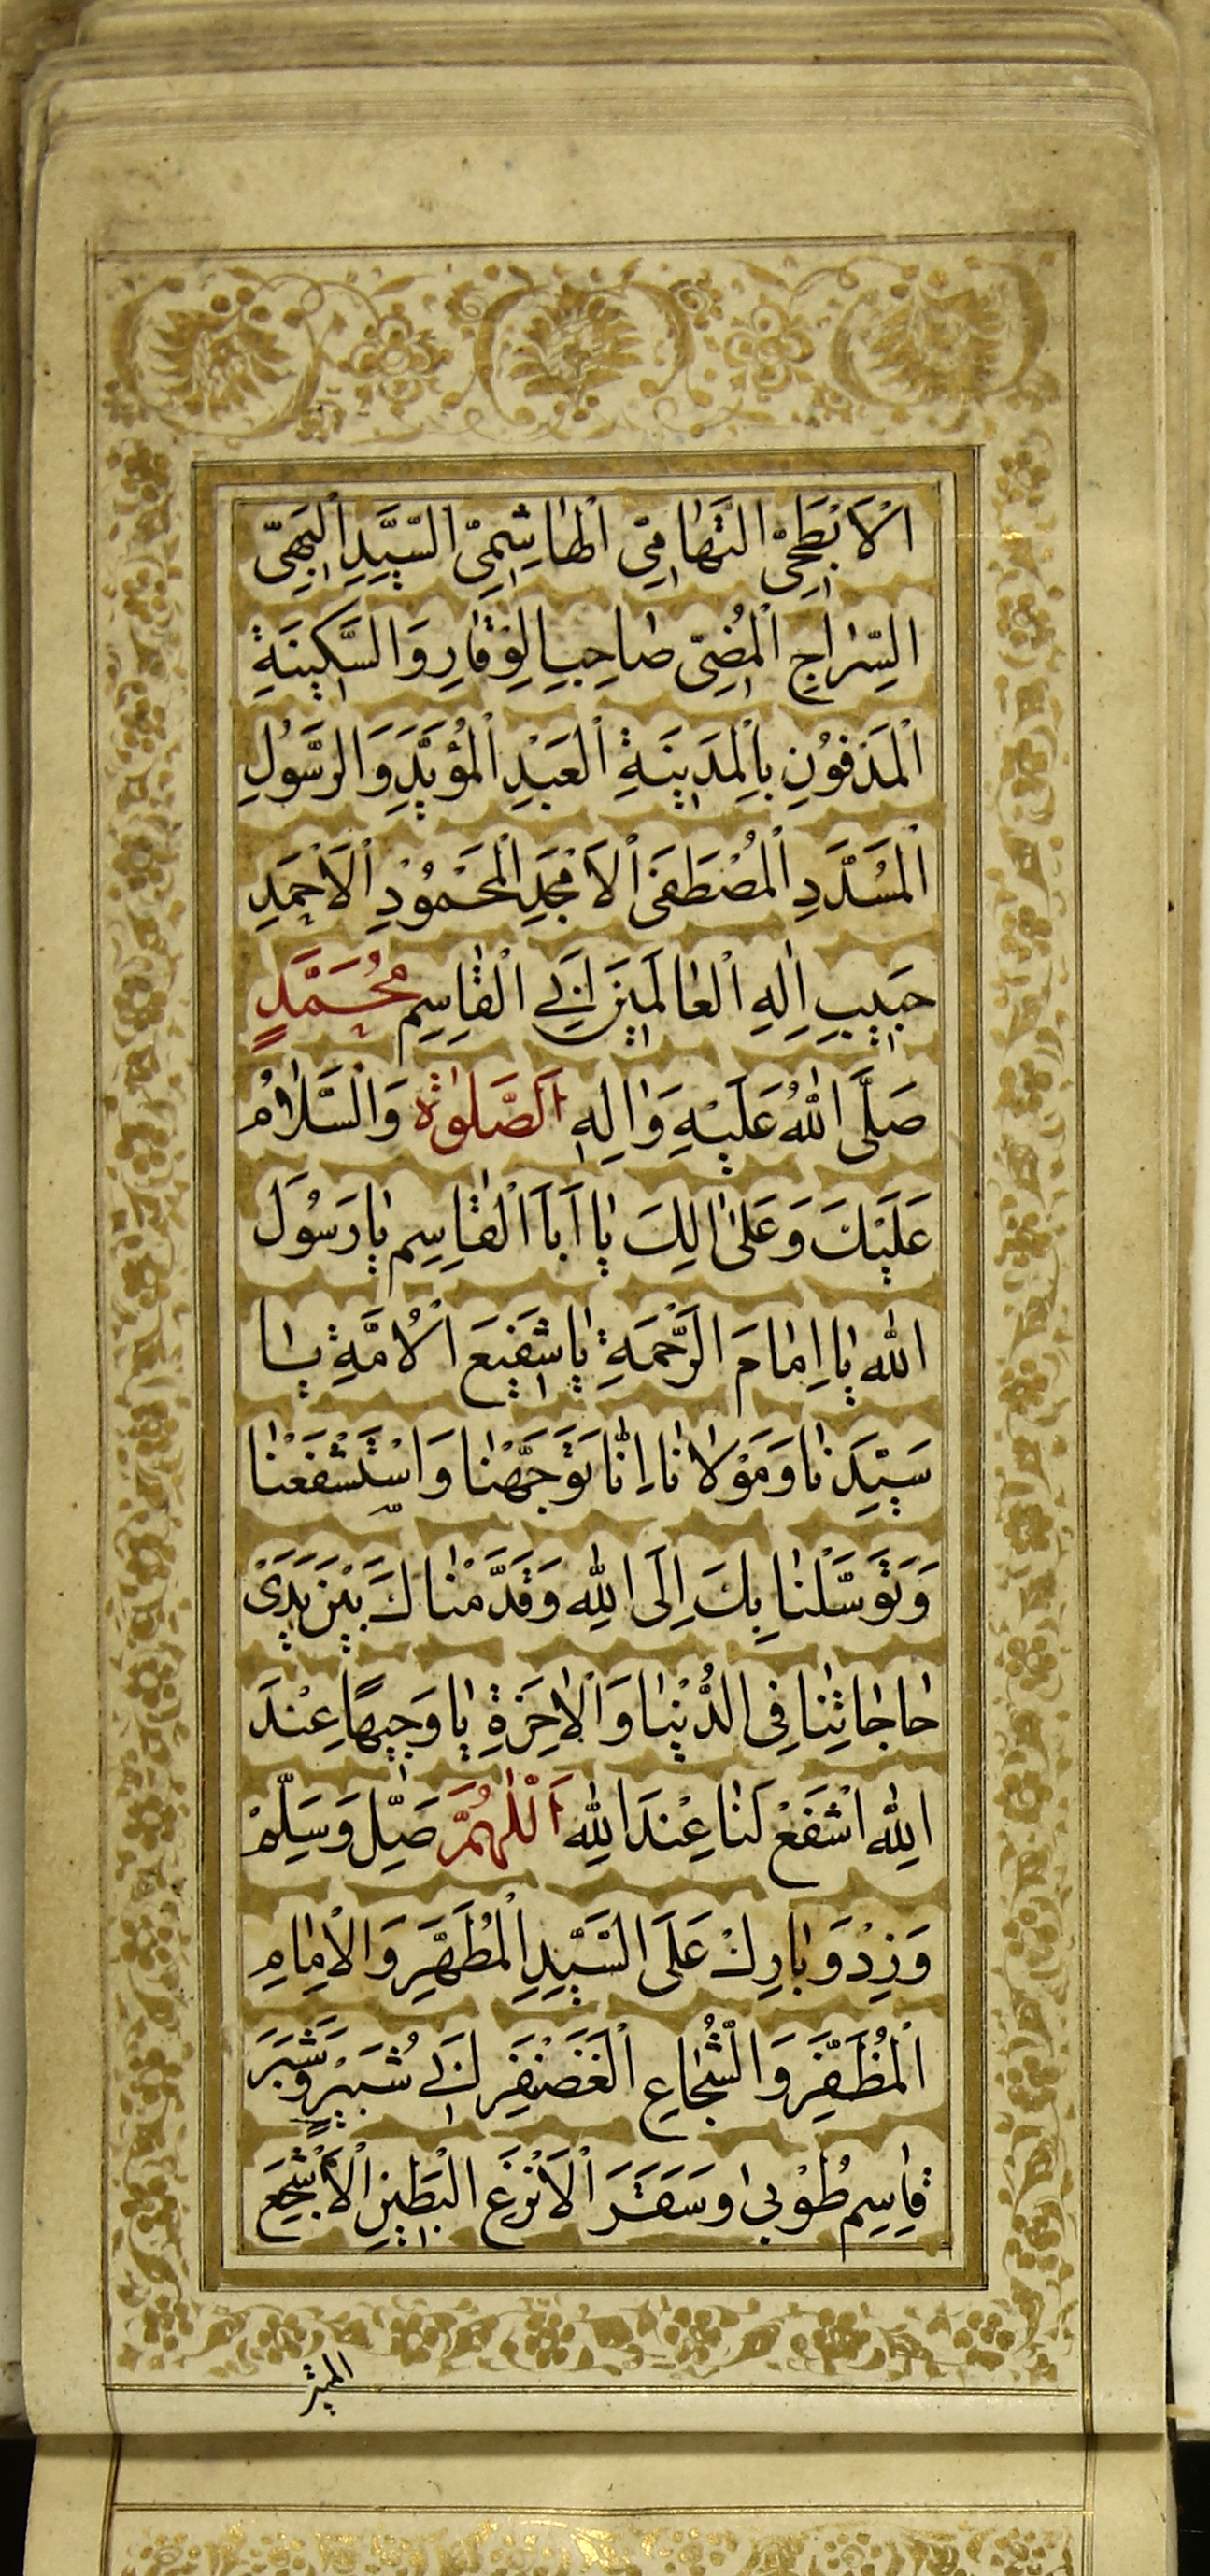 اَلْاَبْطَحِیِّ التَّهٰامِیِّ الْهٰاشِمِیِّ السَّیِّدِ الْبَهِیِّ
السِّرٰاجِ الْمُضِیّ صٰاحِبِ الْوَقٰارِ وَ السَّکِینَةِ
الْمَدْفُونِ بِالْمَدِینَةِ الْعَبْدِ الْمُؤَیَّدِ وَ الرَّسُولِ
الْمُسَدَّدِ الْمُصْطَفَی الْاَمْجَدِ الْمَحْمُوْدِ الْاَحْمَدِ
حَبِیبِ اِلٰهِ الْعٰالَمِینَ اَبِی الْقٰاسِمِ مُحَمَّدٍ
صَلَّی اللّٰهُ عَلَیْهِ وَ اٰلِهِ اَلصَّلٰوةُ وَ السَّلٰامُ
عَلَیْكَ وَ عَلیٰ اٰلِكَ یٰا اَبَا الْقٰاسِمِ یٰا رَسُوَلَ
اللّٰه یٰا اِمٰامَ الرَّحْمَةِ یٰا شَفِیعَ الْاُمَّةِ یٰا
سَیِّدَنٰا وَ مَوْلٰانٰا اِنّٰا تَوَجَّهْنٰا وَ اسْتَشْفَعْنٰا
وَ تَوَسَّلْنٰا بِكَ اِلَی اللّٰهِ وَ قَدَّمْنٰاكَ بَیْنَ یَدَیْ
حٰاجٰاتِنٰا فِی الدُّنْیٰا وَ الْاٰخِرَةِ یٰا وَجِیهًا عِنْدَ
اللّٰهِ اشْفَعْ لَنٰا عِنْدَ اللّٰهِ اَللّٰهُمَّ صَلِّ وَ سَلِّمْ
وَ زِدْ وَ بٰارِكْ عَلَی السَّیِّدِ الْمُطَهَّرِ وَ الْاِمٰامِ
الْمُظَفَّرِ وَ الشُّجٰاعِ الْغَضَنْفَرِ اَبِی شُبَیْرٍ وَ شَبَرَ
قٰاسِمِ طُوْبیٰ وَ سَقَرَ الْاَنْزَعِ الْبَطِینِ الْاَشْجَعِ
المتین